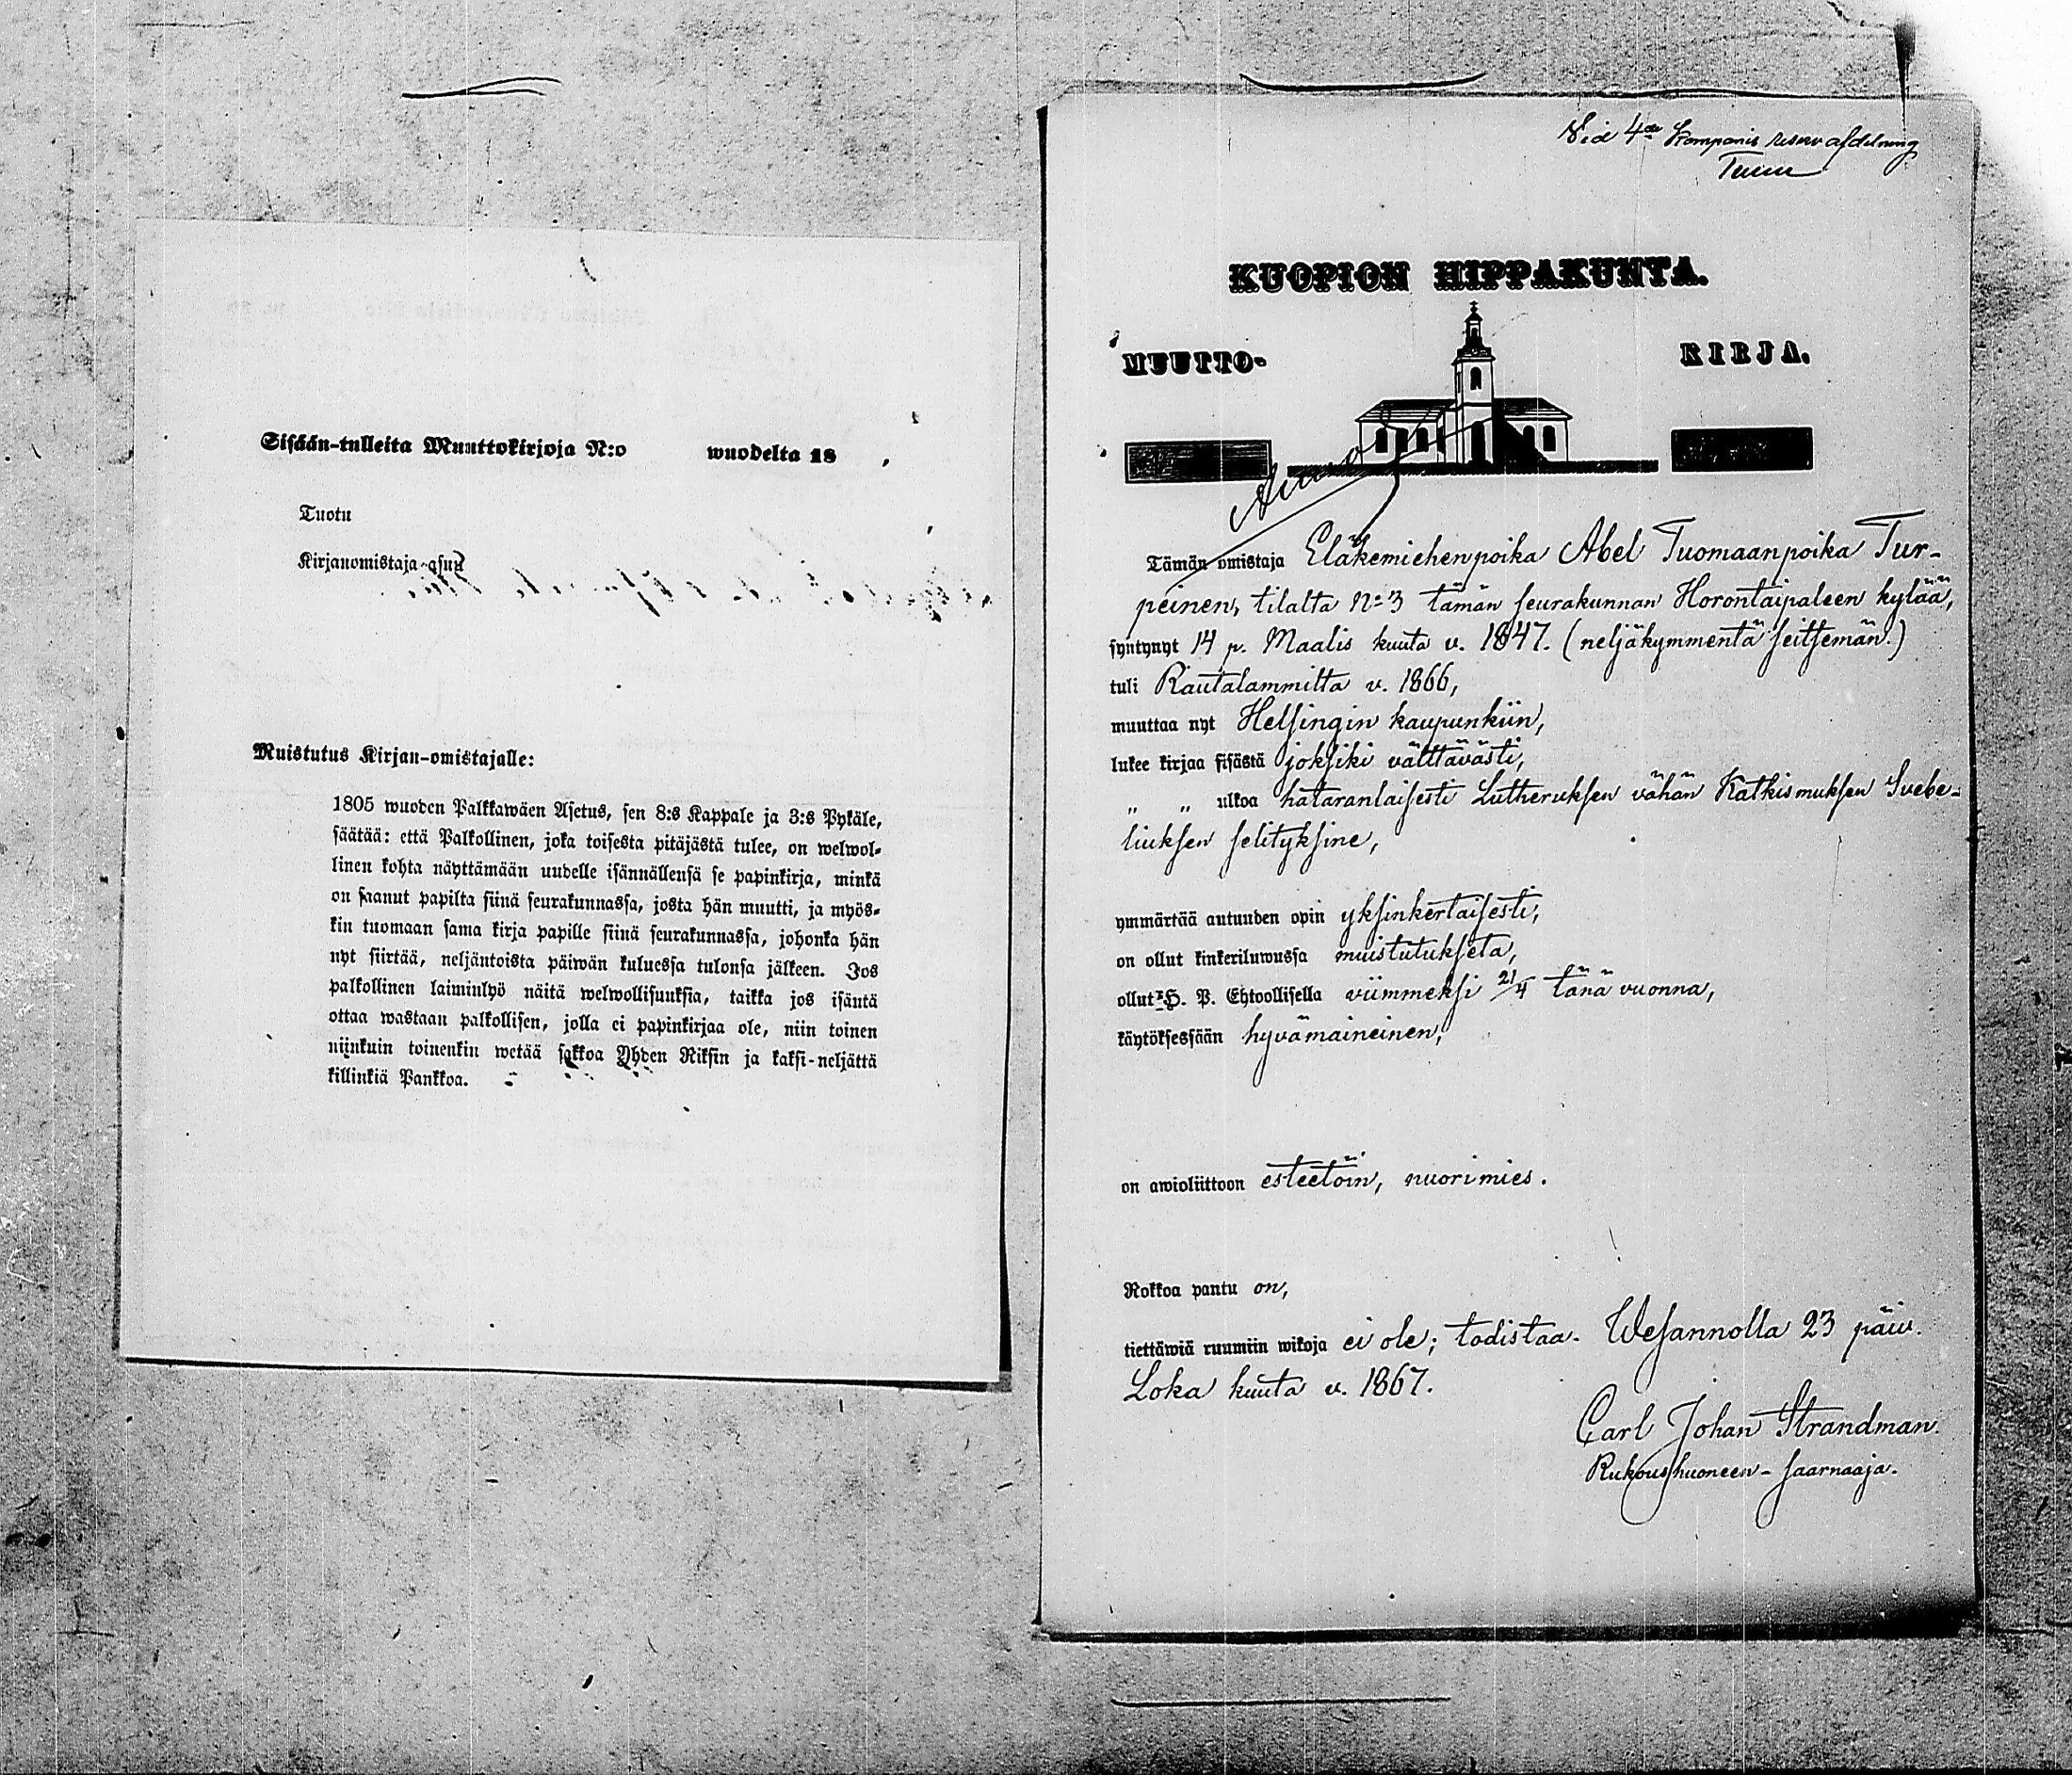 Sisään-tulleita Muuttokirjoja N:o wuodelta 18
Tuotu
Kirjanomistaja asuu
Muistutus Kirjan-omistajalle:
1805 wuoden Palkkawäen Asetus, sen 8:s Kappale ja 3:s Pykäle,
säätää: että Palkollinen, joka toisesta pitäjästä tulee, on welwol-
linen kohta näyttämään uudelle isännällensä se papinkirja, minkä
on saanut papilta siinä seurakunnassa, josta hän muutti, ja myös-
kin tuomaan sama kirja papille siinä seurakunnassa, johonka hän
nyt siirtää, neljäntoista päiwän kuluessa tulonsa jälkeen. Jos
palkollinen laiminlyö näitä welwollisuuksia, taikka jos isäntä
ottaa wastaan palkollisen, jolla ei papinkirjaa ole, niin toinen
niinkuin toinenkin wetää sakkoa Yhden Riksin ja kaksi-neljättä
killinkiä Pankkoa.
Vid 4de Kompanis reserv afdelning
KUOPION HIPPAKUNTA.
MUUTTO- KIRJA.
Tämän omistaja Eläkemiehenpoika Abel Tuomaanpoika Tur-
peinen, tilalta No 3 tämän seurakunnan Horontaipaleen kylää,
syntynyt 14 p. Maalis kuuta v. 1847. (neljäkymmentä seitsemän.)
tuli Rautalammilta v. 1866,
muuttaa nyt Helsingin kaupunkiin,
lukee kirjaa sisästä joksiki välttävästi,
" " ulkoa hataranlaisesti Lutheruksen vähän Katkismuksen Svebe-
liuksen selityksine,
ymmärtää autuuden opin yksinkertaisesti,
on ollut kinkeriluwussa muistutukseta,
ollut H. P. Ehtoollisella viimmeksi 21/4 tänä vuonna,
käytöksessään hyvämaineinen,
on awioliittoon esteetöin, nuorimies.
Rokkoa pantu on,
tiettäwiä ruumiin wikoja ei ole; todistaa. Wesannolla 23 päiv.
Loka kuuta v. 1867.
Carl Johan Strandman.
Rukoushuoneen-saarnaaja.